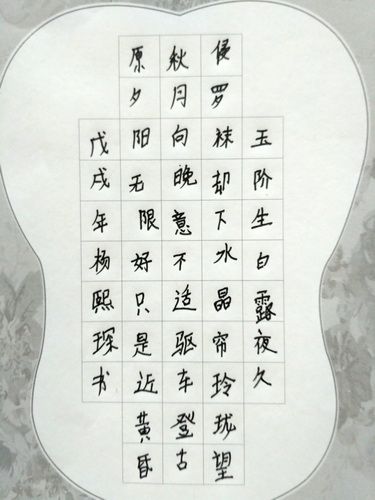 玉阶生白露夜久
侵罗袜却下水晶帘玲珑望
秋月向晚意不适驱车登古
原夕阳无限好只是近黄昏
戊戌年杨熙琛书